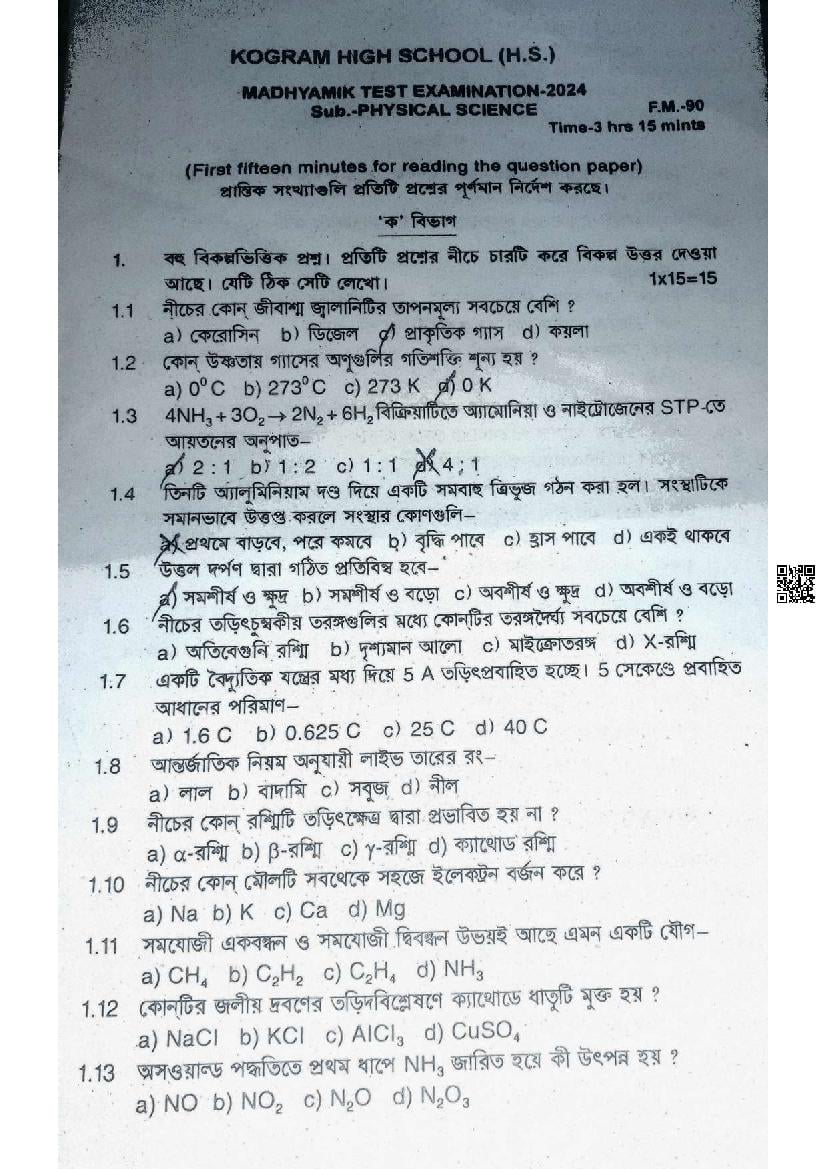 KOGRAM HIGH SCHOOL (H.S.)
MADHYAMIK TEST EXAMINATION-2024
Sub.-PHYSICAL SCIENCE F.M.-90
Time-3 hrs 15 mints
(First fifteen minutes for reading the question paper)
প্রান্তিক সংখ্যাগুলি প্রতিটি প্রশ্নের পূর্ণমান নির্দেশ করছে।
'ক' বিভাগ
1. বহু বিকল্পভিত্তিক প্রশ্ন। প্রতিটি প্রশ্নের নীচে চারটি করে বিকল্প উত্তর দেওয়া
আছে। যেটি ঠিক সেটি লেখো। 1x15=15
1.1 নীচের কোন্ জীবাশ্ম জ্বালানিটির তাপনমূল্য সবচেয়ে বেশি ?
a) কেরোসিন b) ডিজেল c) প্রাকৃতিক গ্যাস d) কয়লা
1.2 কোন্ উষ্ণতায় গ্যাসের অণুগুলির গতিশক্তি শূন্য হয় ?
a) 0⁰C b) 273⁰C c) 273 K d) 0 K
1.3 4NH₃ + 3O₂ → 2N₂ + 6H₂ বিক্রিয়াটিতে অ্যামোনিয়া ও নাইট্রোজেনের STP-তে
আয়তনের অনুপাত–
a) 2 : 1 b) 1 : 2 c) 1 : 1 d) 4 ; 1
1.4 তিনটি অ্যালুমিনিয়াম দণ্ড দিয়ে একটি সমবাহু ত্রিভুজ গঠন করা হল। সংস্থাটিকে
সমানভাবে উত্তপ্ত করলে সংস্থার কোণগুলি–
a) প্রথমে বাড়বে, পরে কমবে b) বৃদ্ধি পাবে c) হ্রাস পাবে d) একই থাকবে
1.5 উত্তল দর্পণ দ্বারা গঠিত প্রতিবিম্ব হবে–
a) সমশীর্ষ ও ক্ষুদ্র b) সমশীর্ষ ও বড়ো c) অবশীর্ষ ও ক্ষুদ্র d) অবশীর্ষ ও বড়ো
1.6 নীচের তড়িৎচুম্বকীয় তরঙ্গগুলির মধ্যে কোন্‌টির তরঙ্গদৈর্ঘ্য সবচেয়ে বেশি ?
a) অতিবেগুনি রশ্মি b) দৃশ্যমান আলো c) মাইক্রোতরঙ্গ d) X-রশ্মি
1.7 একটি বৈদ্যুতিক যন্ত্রের মধ্য দিয়ে 5 A তড়িৎপ্রবাহিত হচ্ছে। 5 সেকেণ্ডে প্রবাহিত
আধানের পরিমাণ–
a) 1.6 C b) 0.625 C c) 25 C d) 40 C
1.8 আন্তর্জাতিক নিয়ম অনুযায়ী লাইভ তারের রং–
a) লাল b) বাদামি c) সবুজ d) নীল
1.9 নীচের কোন্ রশ্মিটি তড়িৎক্ষেত্র দ্বারা প্রভাবিত হয় না ?
a) α-রশ্মি b) β-রশ্মি c) γ-রশ্মি d) ক্যাথোড রশ্মি
1.10 নীচের কোন্ মৌলটি সবথেকে সহজে ইলেকট্রন বর্জন করে ?
a) Na b) K c) Ca d) Mg
1.11 সমযোজী একবন্ধন ও সমযোজী দ্বিবন্ধন উভয়ই আছে এমন একটি যৌগ–
a) CH₄ b) C₂H₂ c) C₂H₄ d) NH₃
1.12 কোন্‌টির জলীয় দ্রবণের তড়িদবিশ্লেষণে ক্যাথোডে ধাতুটি মুক্ত হয় ?
a) NaCl b) KCl c) AlCl₃ d) CuSO₄
1.13 অসওয়াল্ড পদ্ধতিতে প্রথম ধাপে NH₃ জারিত হয়ে কী উৎপন্ন হয় ?
a) NO b) NO₂ c) N₂O d) N₂O₃